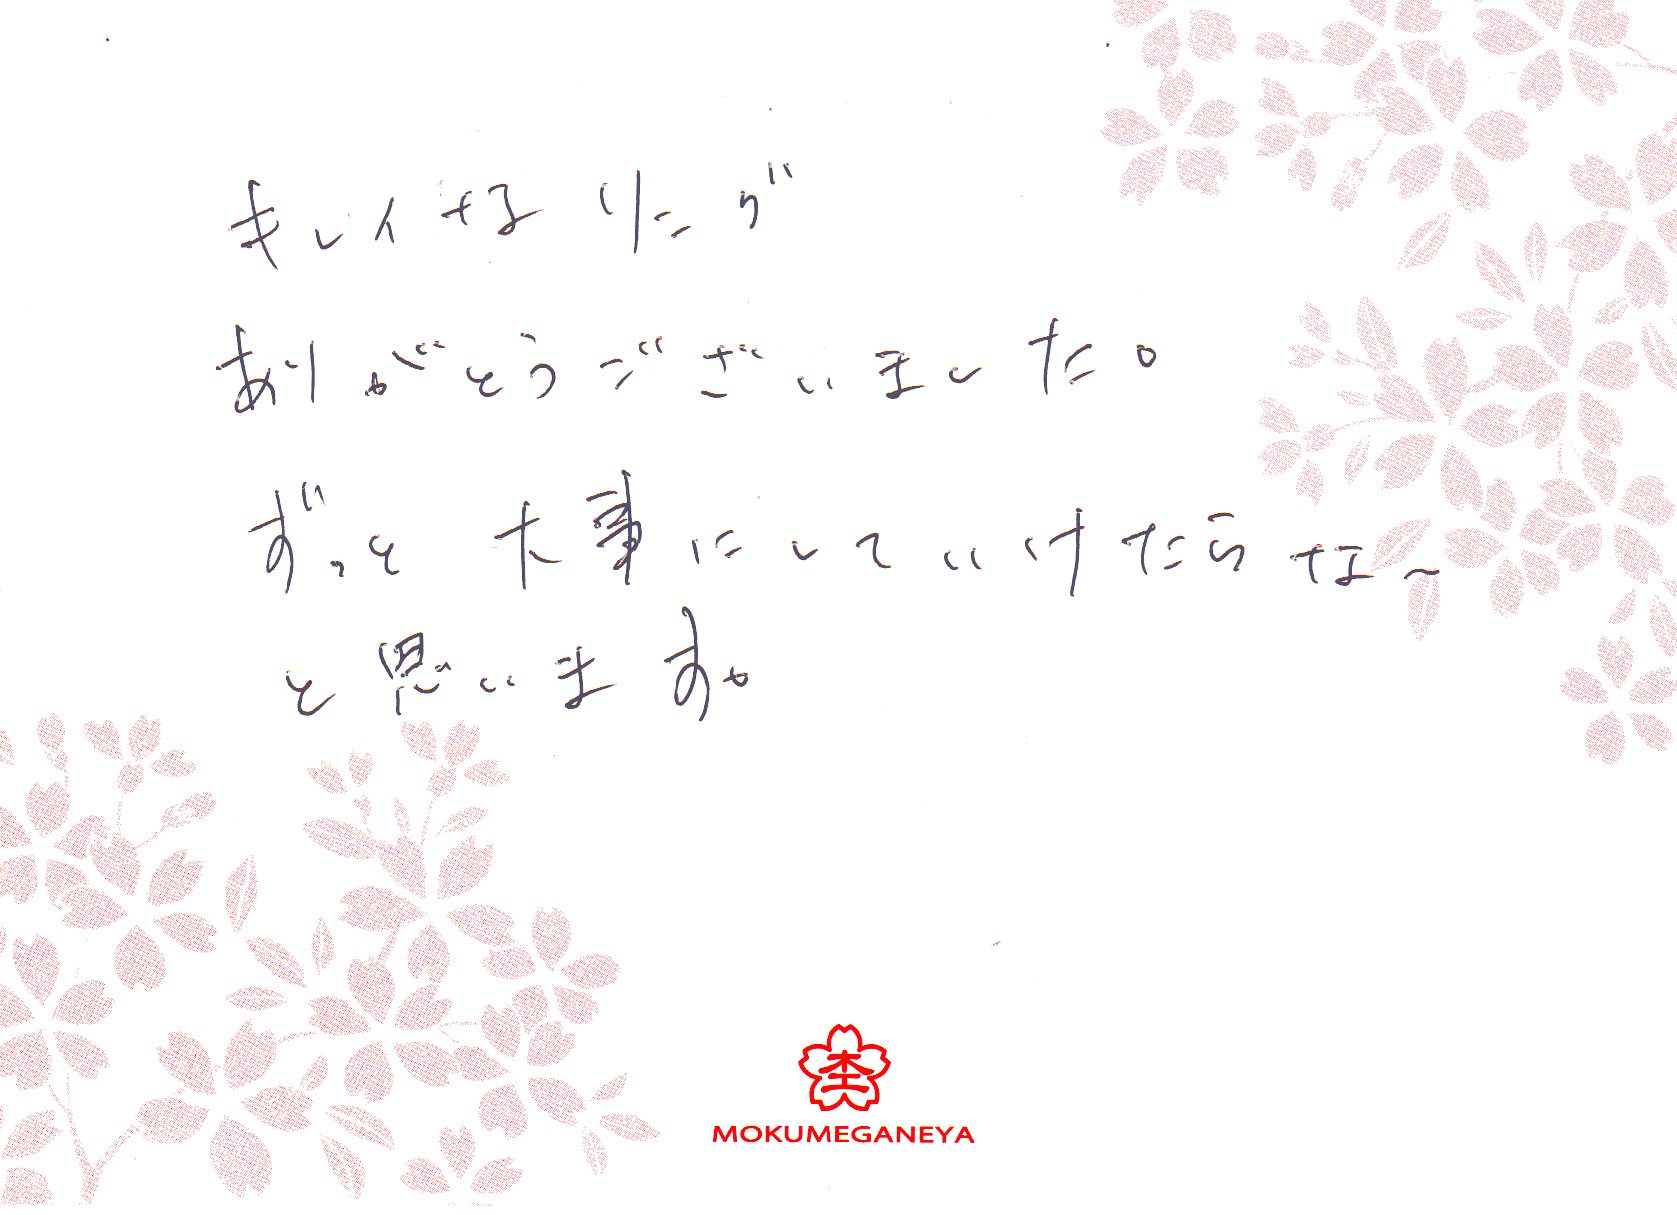 キレイなリング
ありがとうございました。
ずっと大事にしていけたらな～
と思います。
杢
MOKUMEGANEYA